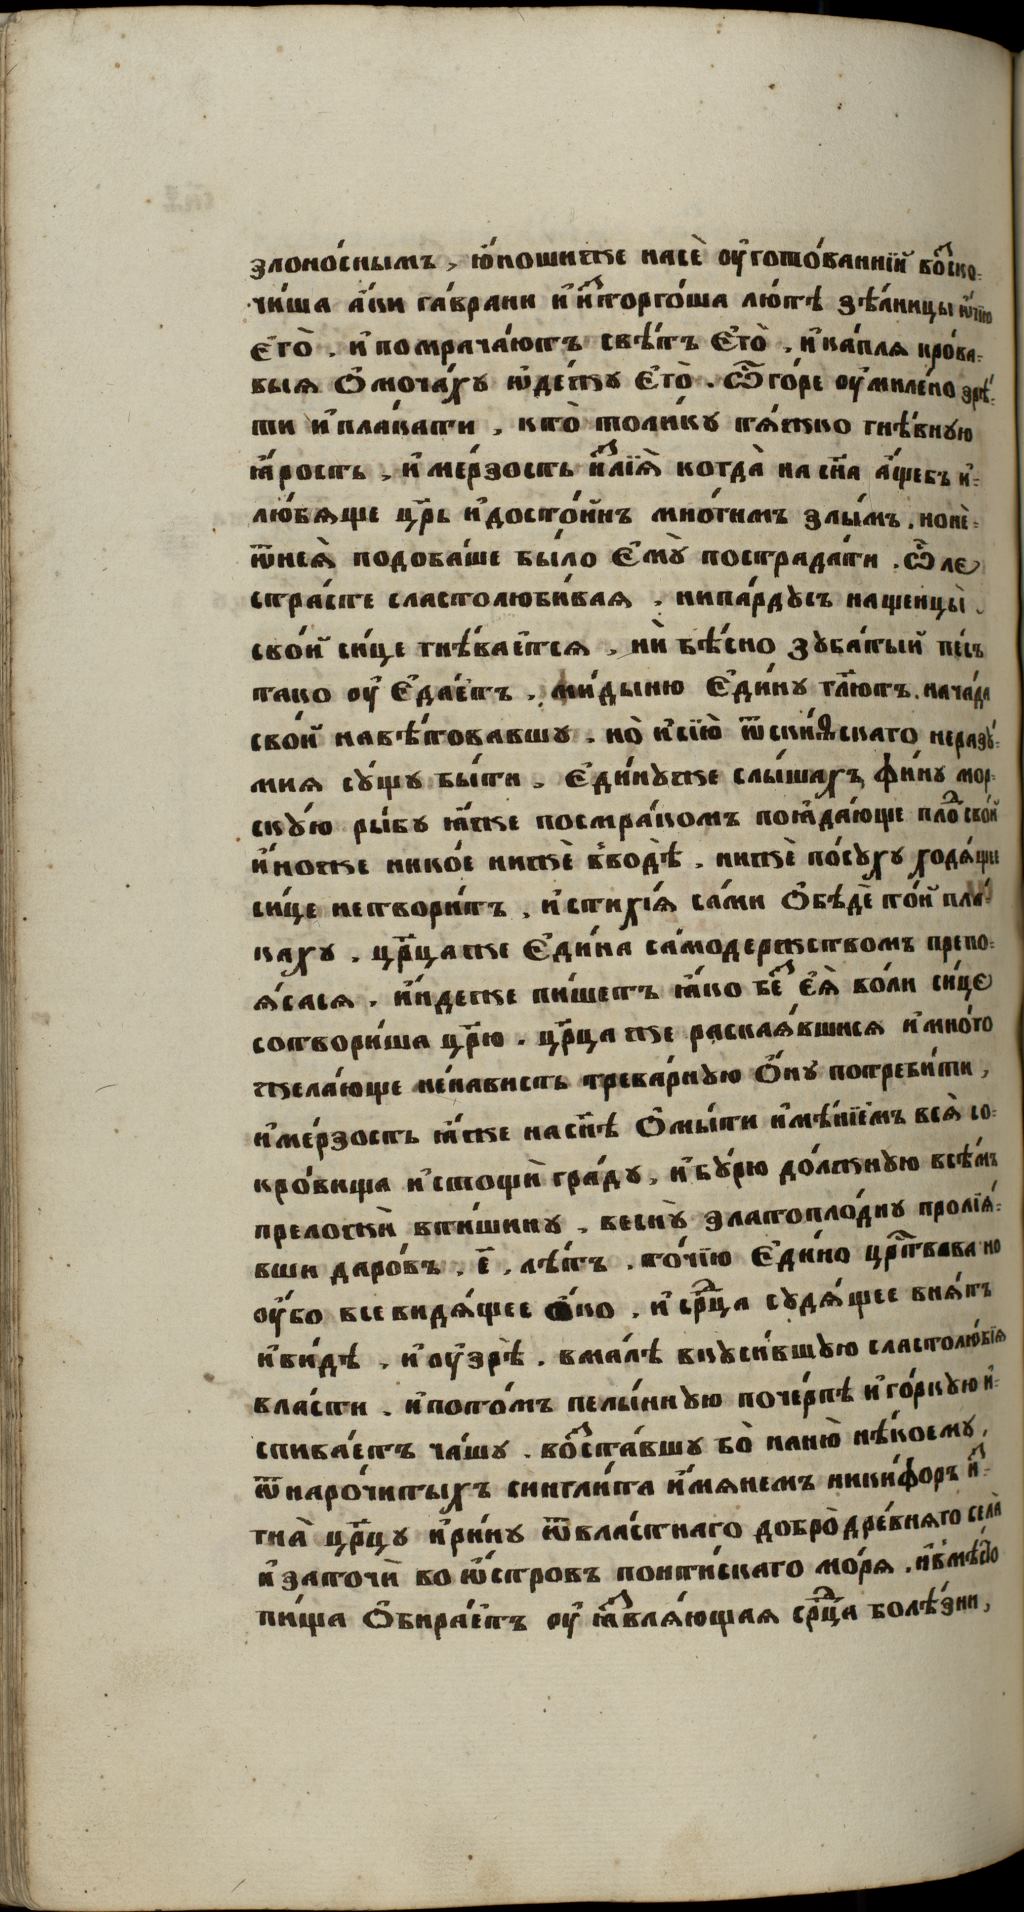 злоно́снымъ, ю҆ношиже насѐ оу҆гото́ваннїи̑ во̑ско=
чи́ша а҆́ки га́врани и҆ и҆стоꙋрго́ша лю́тѣ зѣ́ницы ѻ҆́чїю
є҆гѡ̀. и҆ помрача́ютъ свѣ́тъ є҆гѡ̀, и҆ ка́пля крова́=
выя ѻ҆мочах́у ѻ҆де́жу є҆гѡ̀. ѽ го́ре оу҆миле́но зрѣ́=
ти и҆ пла́кати, кто̀ толи́ку тя́жко гнѣ́вную
ꙗ҆́рость, и҆ ме́рзость и҆злїѧ̀ когда̀ на сн҃а а҆́щебъ и҆=
лю́бяще цр҃ь и҆ досто́йнъ мно́гимъ злы́мъ. нонѐ=
ѿнсѧ̀ подоба́ше бы́ло є҆мꙋ̀ пострада́ти. ѽле
стра́сте сластолюби́вая, нипа́рдусъ на щенцы̀
свои̑ си́це гнѣ́вается, нѝ бѣ́сно зуба́тый пе́съ
тако оу҆ є҆да́етъ, ми́дыню є҆ди́ну гл҃ютъ. на ча́да
свои̑ навѣ́товавшу. но̀ и҆ сїю̀ ѿ ски́ѳскаго неразу́=
мия су́щу бы́ти. є҆ди́нуже слы́шахъ фи́ну мор=
ску́ю ры́бу ꙗ҆́же посмра́комъ поꙗ҆да́юще пло̑ свои̑
и҆́ноже нико́е нижѐ в̾во́дѣ. нижѐ по́суху ходя́щи
си́це не твори́тъ, и҆ стихі́я са́ми ѻ҆бѣдѐ то́й пла́=
каху. цр҃цаже є҆ди́на само́держствомъ препо=
я́сася. и҆́ндеже пи́шетъ ꙗ҆́ко бе̑ є҆ѧ̀ во́ли си́це
сотвори́ша цр҃ю. цр҃ца же раская́вшися и҆ мно́го
жела́юще не́нависть трева́рную ѻ҆́ну потреби́ти,
и҆ ме́рзость ꙗ҆́же на сн҃ѣ ѻ҆мы́ти и҆мѣ́нїемъ всѧ̀ со=
кро́вища и҆стощѝ гра́ду, и҆ бу́рю до́лжную всѣ́мъ
преложѝ в̾ти́шину. весну̀ златопло́дну пролїя́=
вши даро́въ. є҃. лѣ́тъ. то́чїю є҆ди́но цр҃твова но
оу҆́бо все видя́щее ѻ҆́ко, и҆ ср҃ца судя́щее вня́тъ
и҆ ви́дѣ, и҆ оу҆зрѣ̀. вма́лѣ вкуси́вшую сластолю́бїя
вла́сти. и҆ пото́мъ пелы́нную поче́рпѣ и҆ го́рькую и҆=
спива́етъ ча́шу. во̑ста́вшу бо̀ на ню̀ нѣ́коему,
ѿ наро́читыхъ синкли́та и҆́мянемъ ники́форъ и҆з=
гна̀ цр҃цу и҆ри́ну ѿ вла́стнаго добрѐ дре́вняго села̀
и҆ заточѝ во ѻ҆́стровъ понти́скаго мо́ря. и҆ вмѣ́сто
пи́ща ѻ҆бира́етъ оу҆ ꙗ҆звля́ющая ср҃ца болѣ́зни,